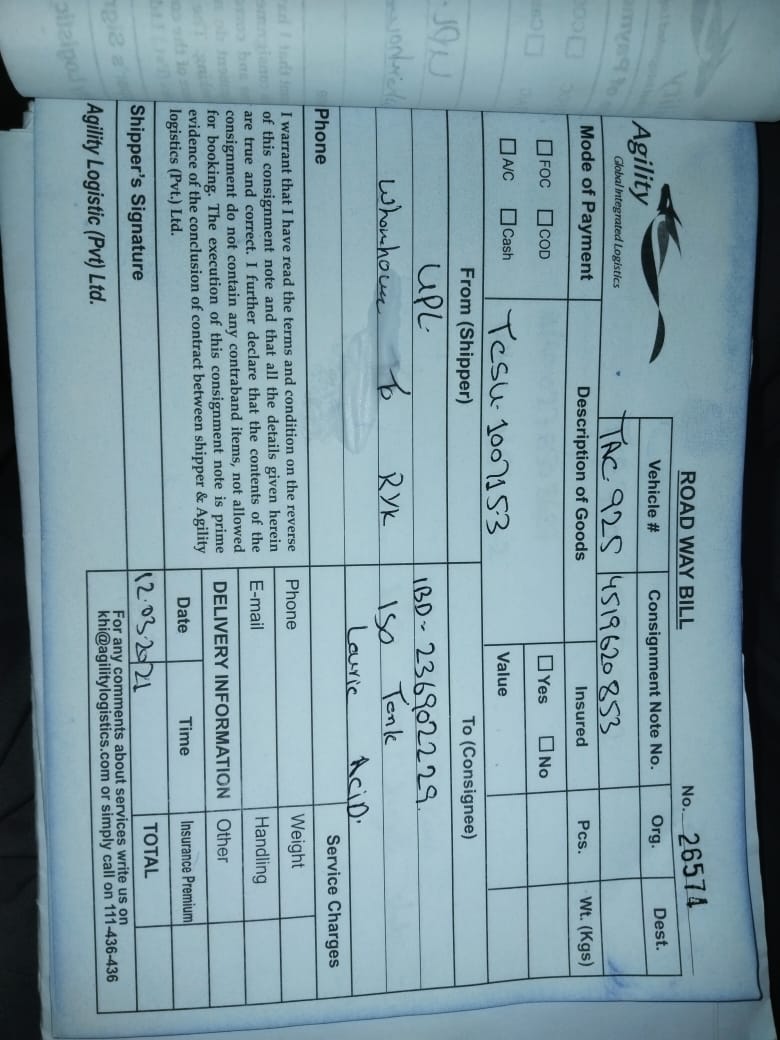 ROAD WAY BILL
No. 26574
Agility
Global Integrated Logistics
Vehicle # Consignment Note No. Org. Dest.
TAC-925 4519620853
Mode of Payment Description of Goods Insured Pcs. Wt. (Kgs)
FOC COD Yes No
A/C Cash TCSU-1007153 Value
From (Shipper) To (Consignee)
UPL IBD-236902229
To RYK ISO Tank
Lauric AciD.
Phone Service Charges
I warrant that I have read the terms and condition on the reverse
of this consignment note and that all the details given herein
are true and correct. I further declare that the contents of the
consignment do not contain any contraband items, not allowed
for booking. The execution of this consignment note is prime
evidence of the conclusion of contract between shipper & Agility
logistics (Pvt.) Ltd.
Phone Weight
E-mail Handling
DELIVERY INFORMATION Other
Date Time Insurance Premium
12.03.2021 TOTAL
Shipper's Signature
For any comments about services write us on
khi@agilitylogistics.com or simply call on 111-436-436
Agility Logistic (Pvt) Ltd.